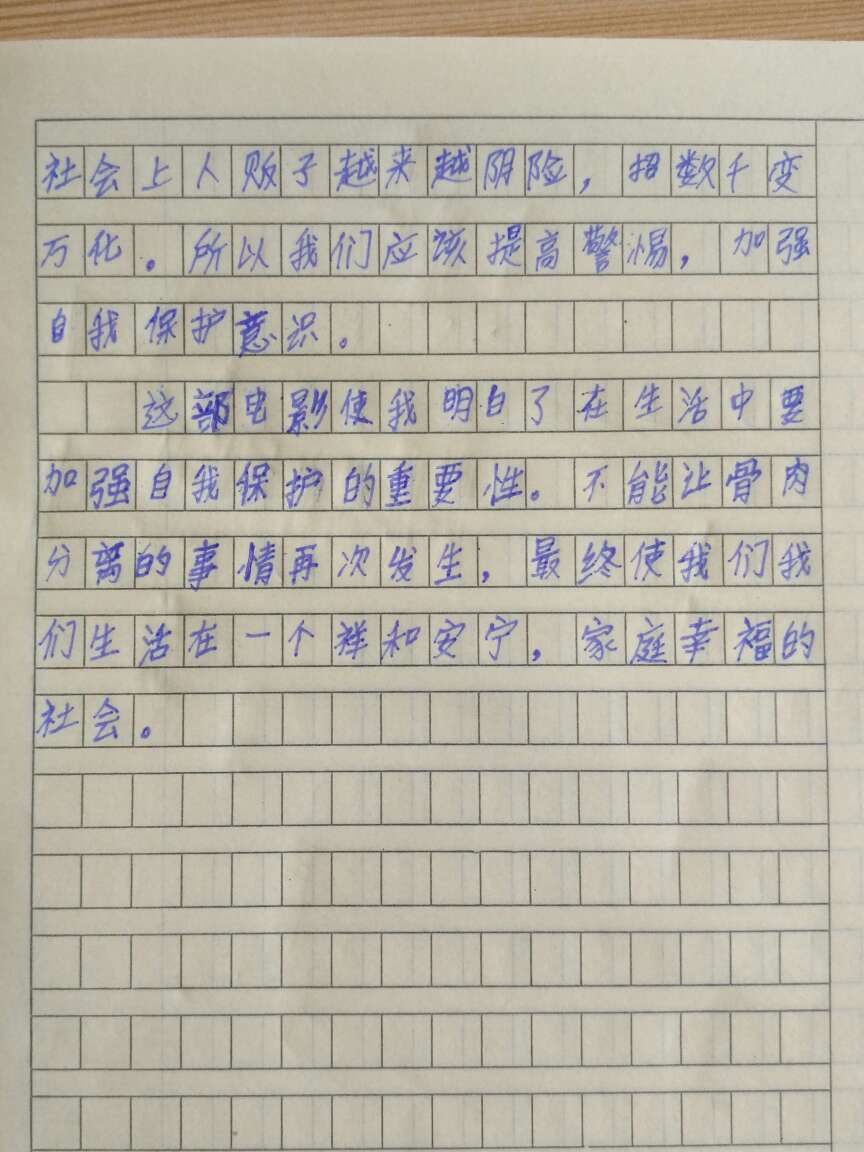 社会上人贩子越来越阴险，招数千变
万化。所以我们应该提高警惕，加强
自我保护意识。
这部电影使我明白了在生活中要
加强自我保护的重要性。不能让骨肉
分离的事情再次发生，最终使我们我
们生活在一个祥和安宁，家庭幸福的
社会。